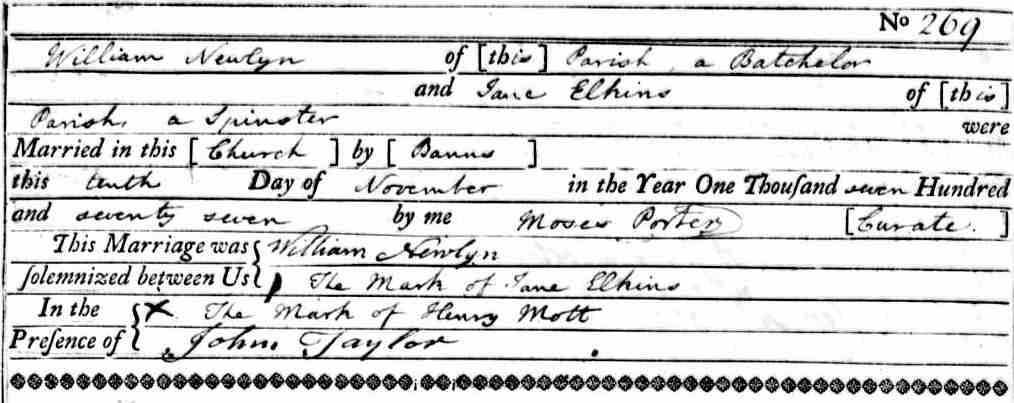 No 269
William Newlyn of [this] Parish, a Batchelor
and Jane Elkins of [this]
Parish, a Spinster were
Married in this [Church] by [Banns]
this tenth Day of November in the Year One Thouſand seven Hundred
and seventy seven by me Moses Porter [Curate.]
This Marriage was { William Newlyn
ſolemnized between Us { The Mark of Jane Elkins
In the { X The Mark of Henry Mott
Preſence of { John Taylor